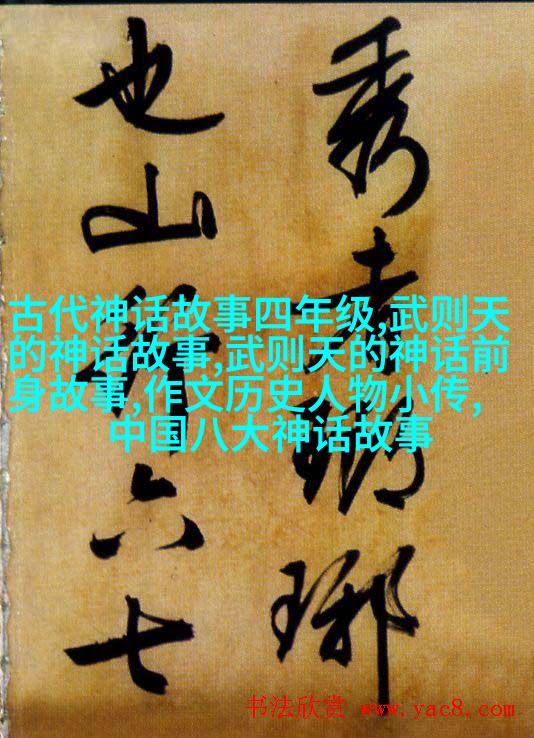 秀者瑯琊
也山行六七
古代神话故事四年级,武则天
的神话故事,武则天的神话前
身故事,作文历史人物小传,
中国八大神话故事
书法欣赏 www.yac8.com